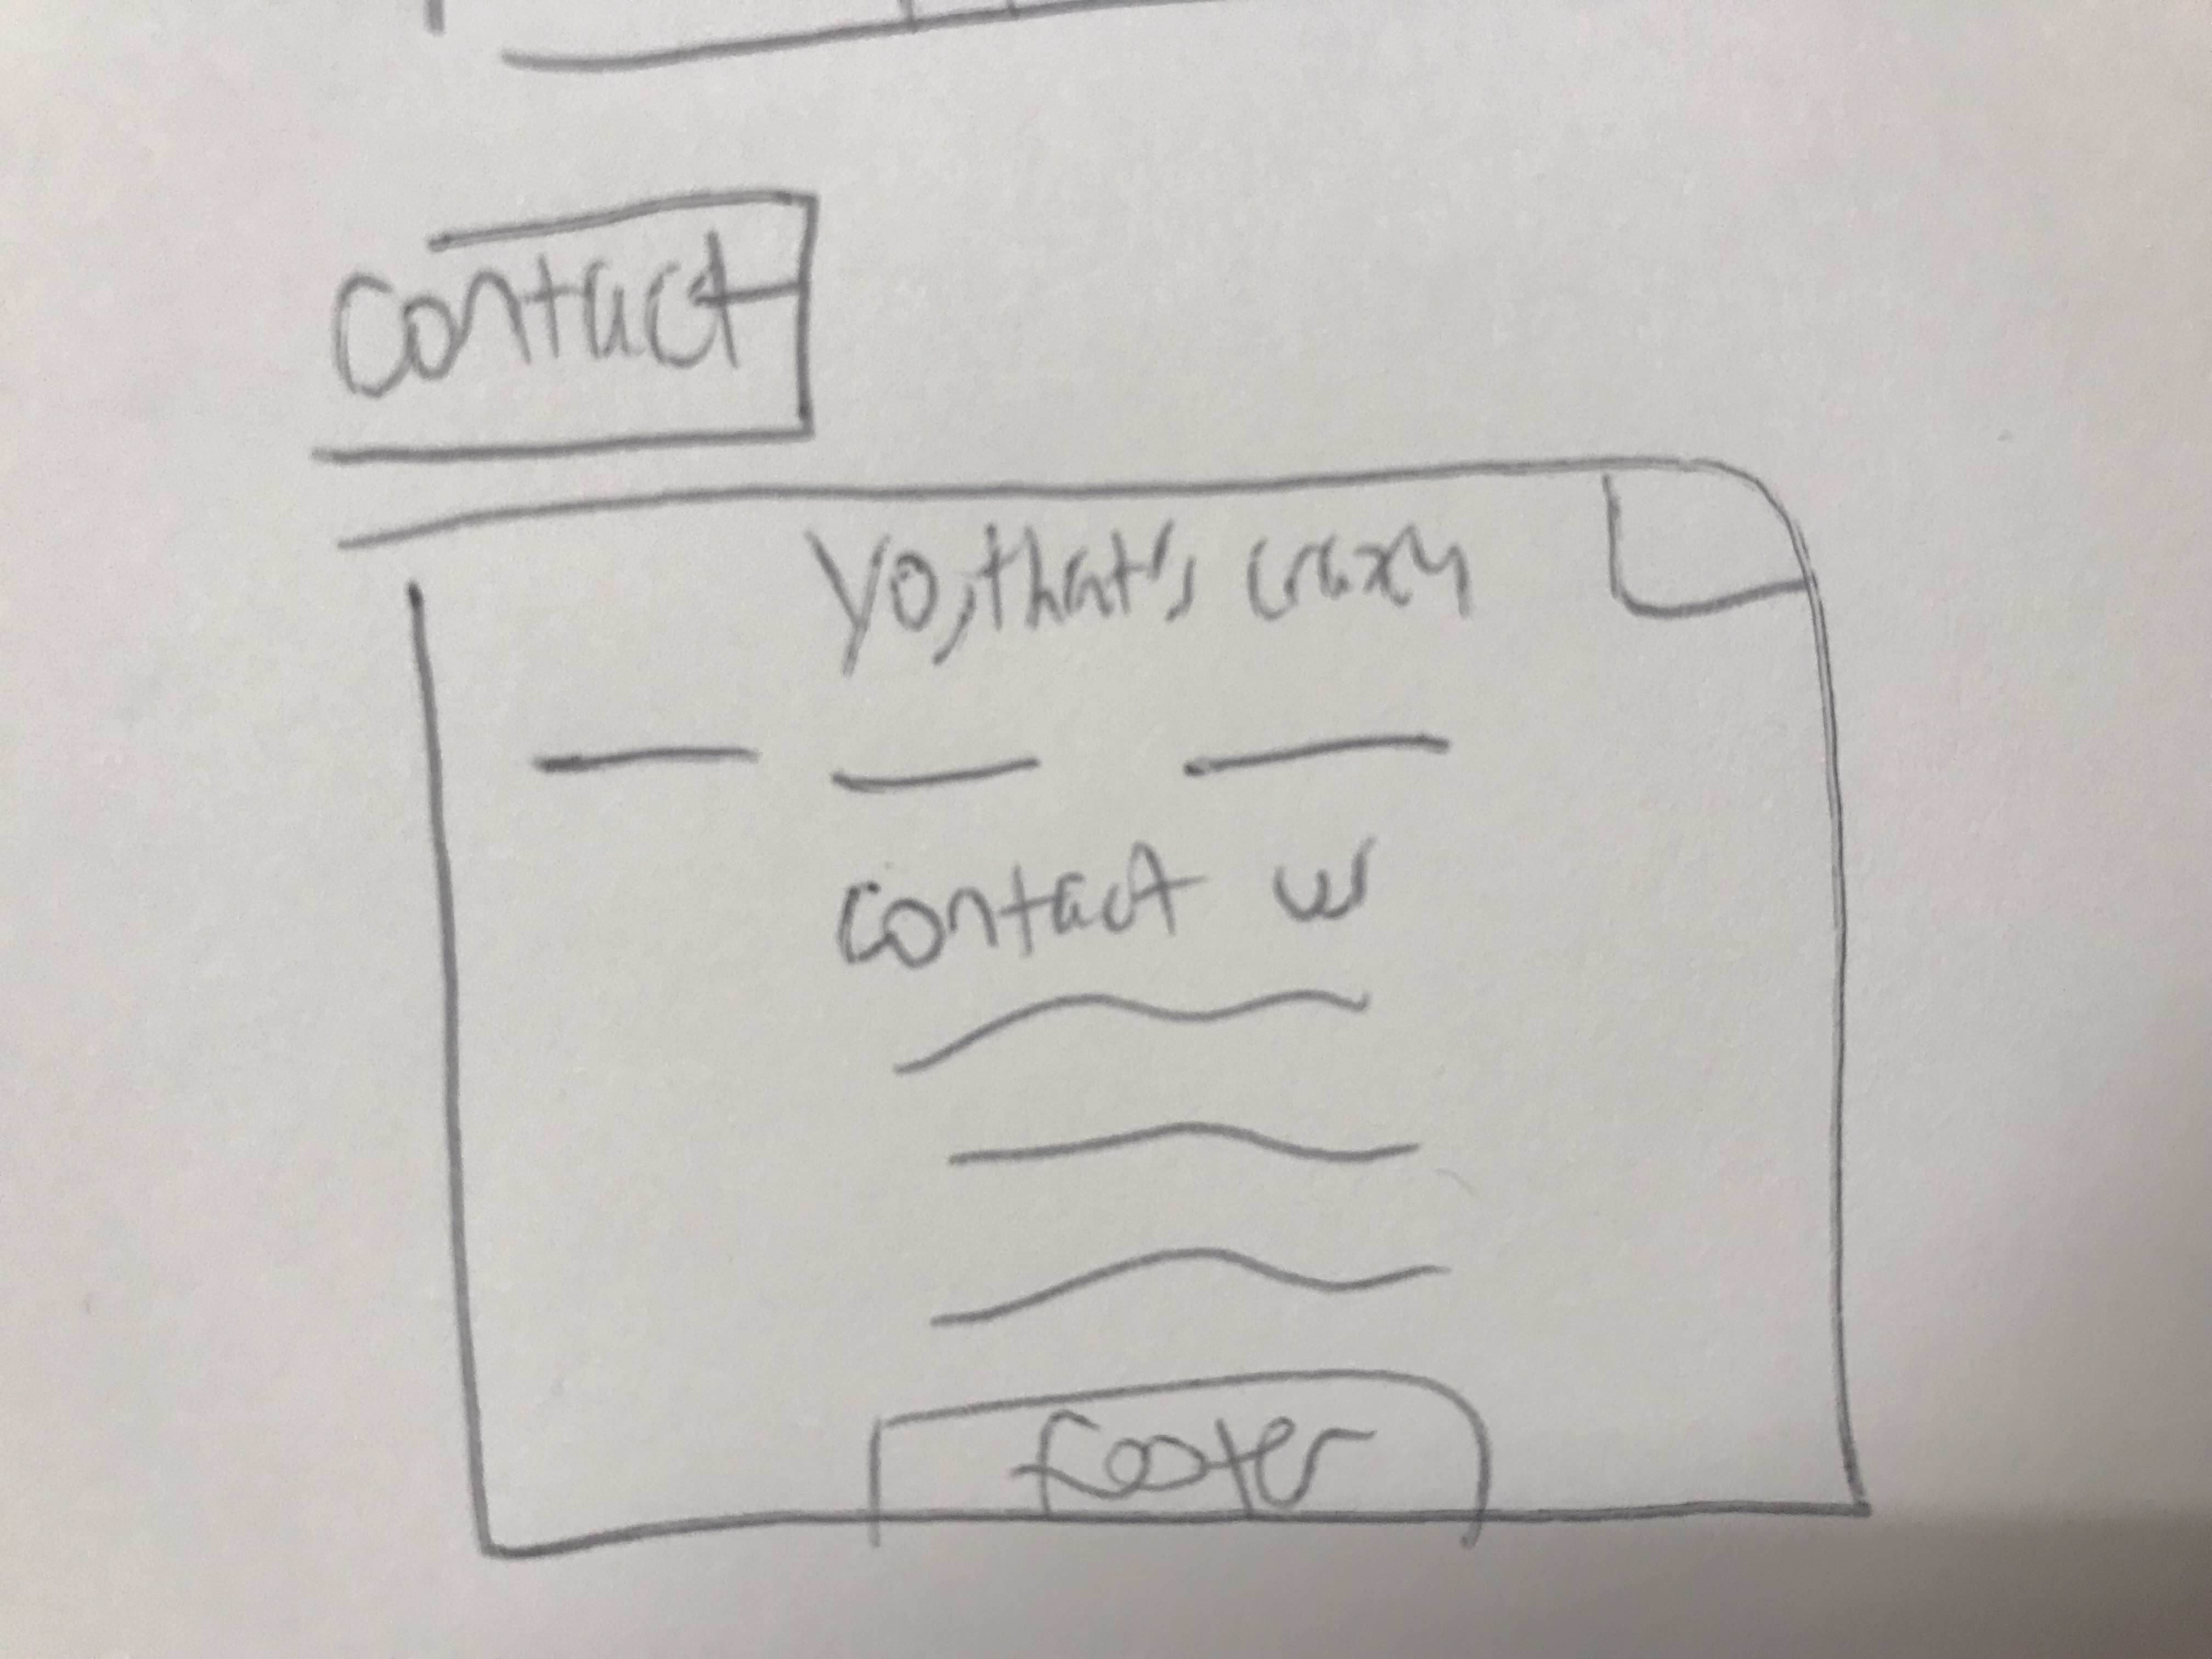 Contact
Yo, that's crazy
Contact us
footer